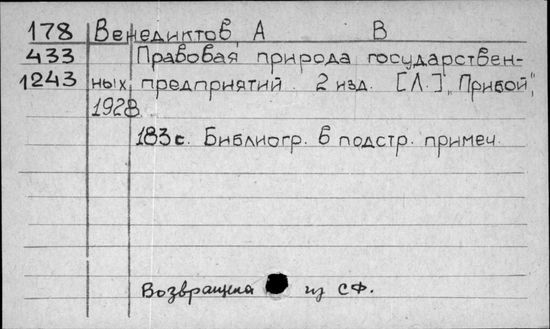 178 Венедиктов А В
433 Правовая природа государствен-
1243 ных предприятий. 2 изд. [Л.] „Прибой",
1928
183 с. Библиогр. в подстр. примеч.
Возвращена из СФ.